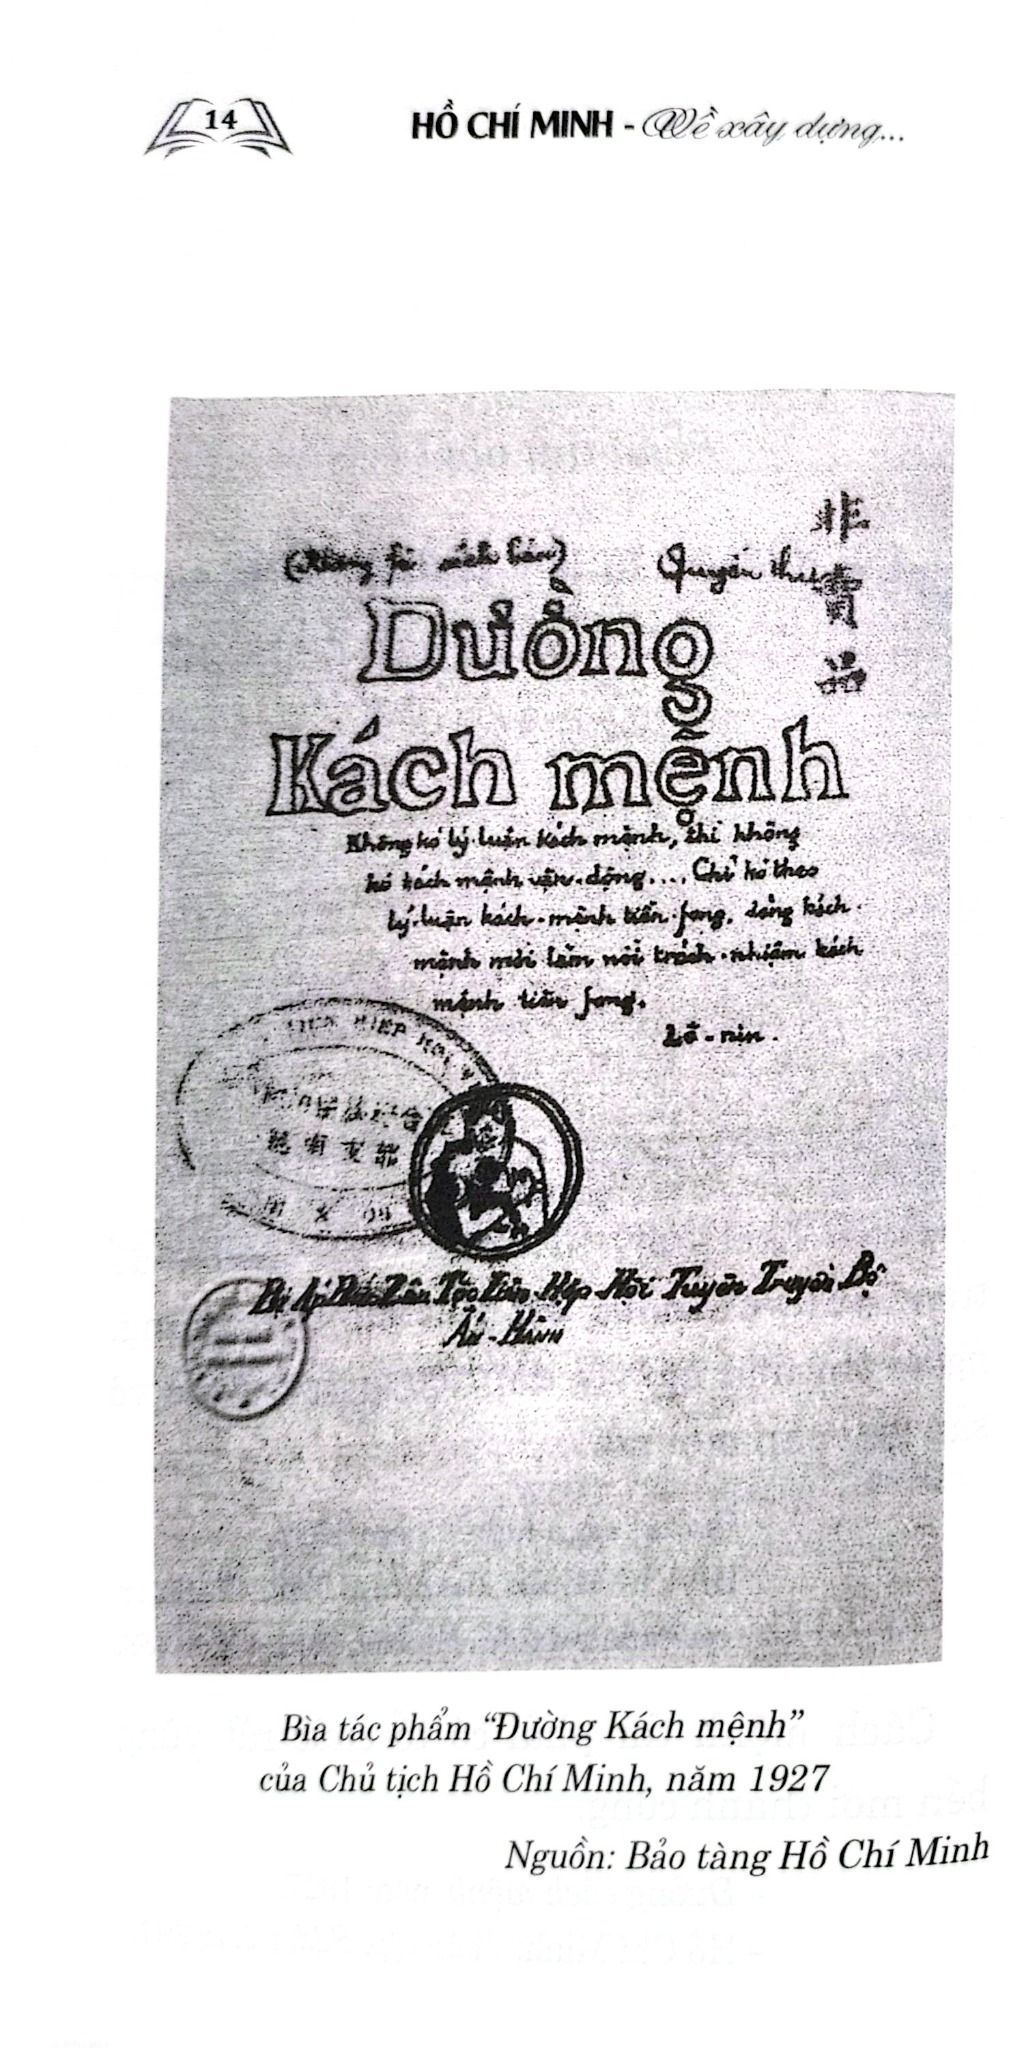 14
HỒ CHÍ MINH - Về xây dựng...
非
賣
品
Quyển thứ
Đường
Kách mệnh
Không kó lý luận kách mệnh, thì không
kó kách mệnh vận-động.... Chỉ kó theo
lý-luận kách-mệnh tiền-fong, đảng kách-
mệnh mới làm nổi trách-nhiệm kách
mệnh tiền fong.
Lê-nin.
HIEP HOI
Bị Áp Bức Dân Tộc Liên Hiệp Hội Tuyên Truyền Bộ
Ấn-Hành
Bìa tác phẩm “Đường Kách mệnh”
của Chủ tịch Hồ Chí Minh, năm 1927
Nguồn: Bảo tàng Hồ Chí Minh